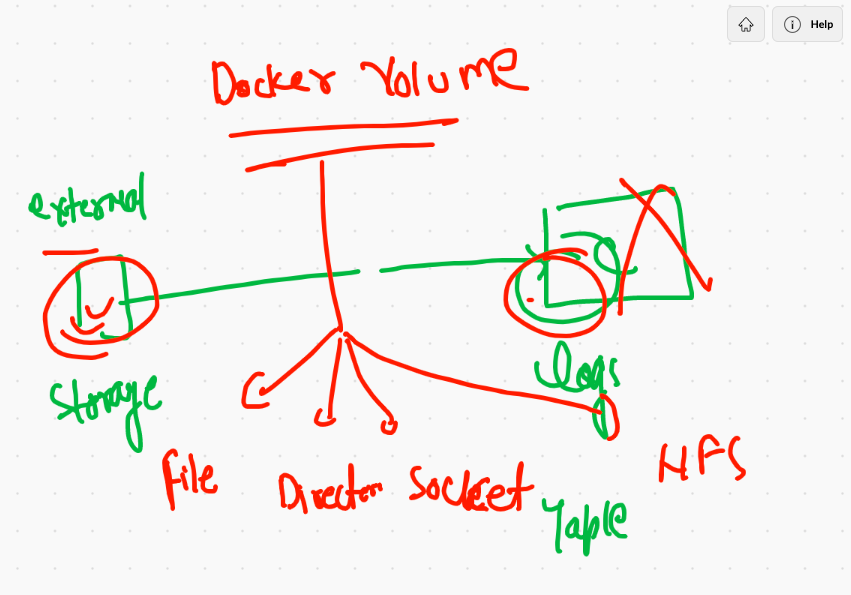 Help
Docker Volume
external
storage
logs
File
Director
Socket
HFS